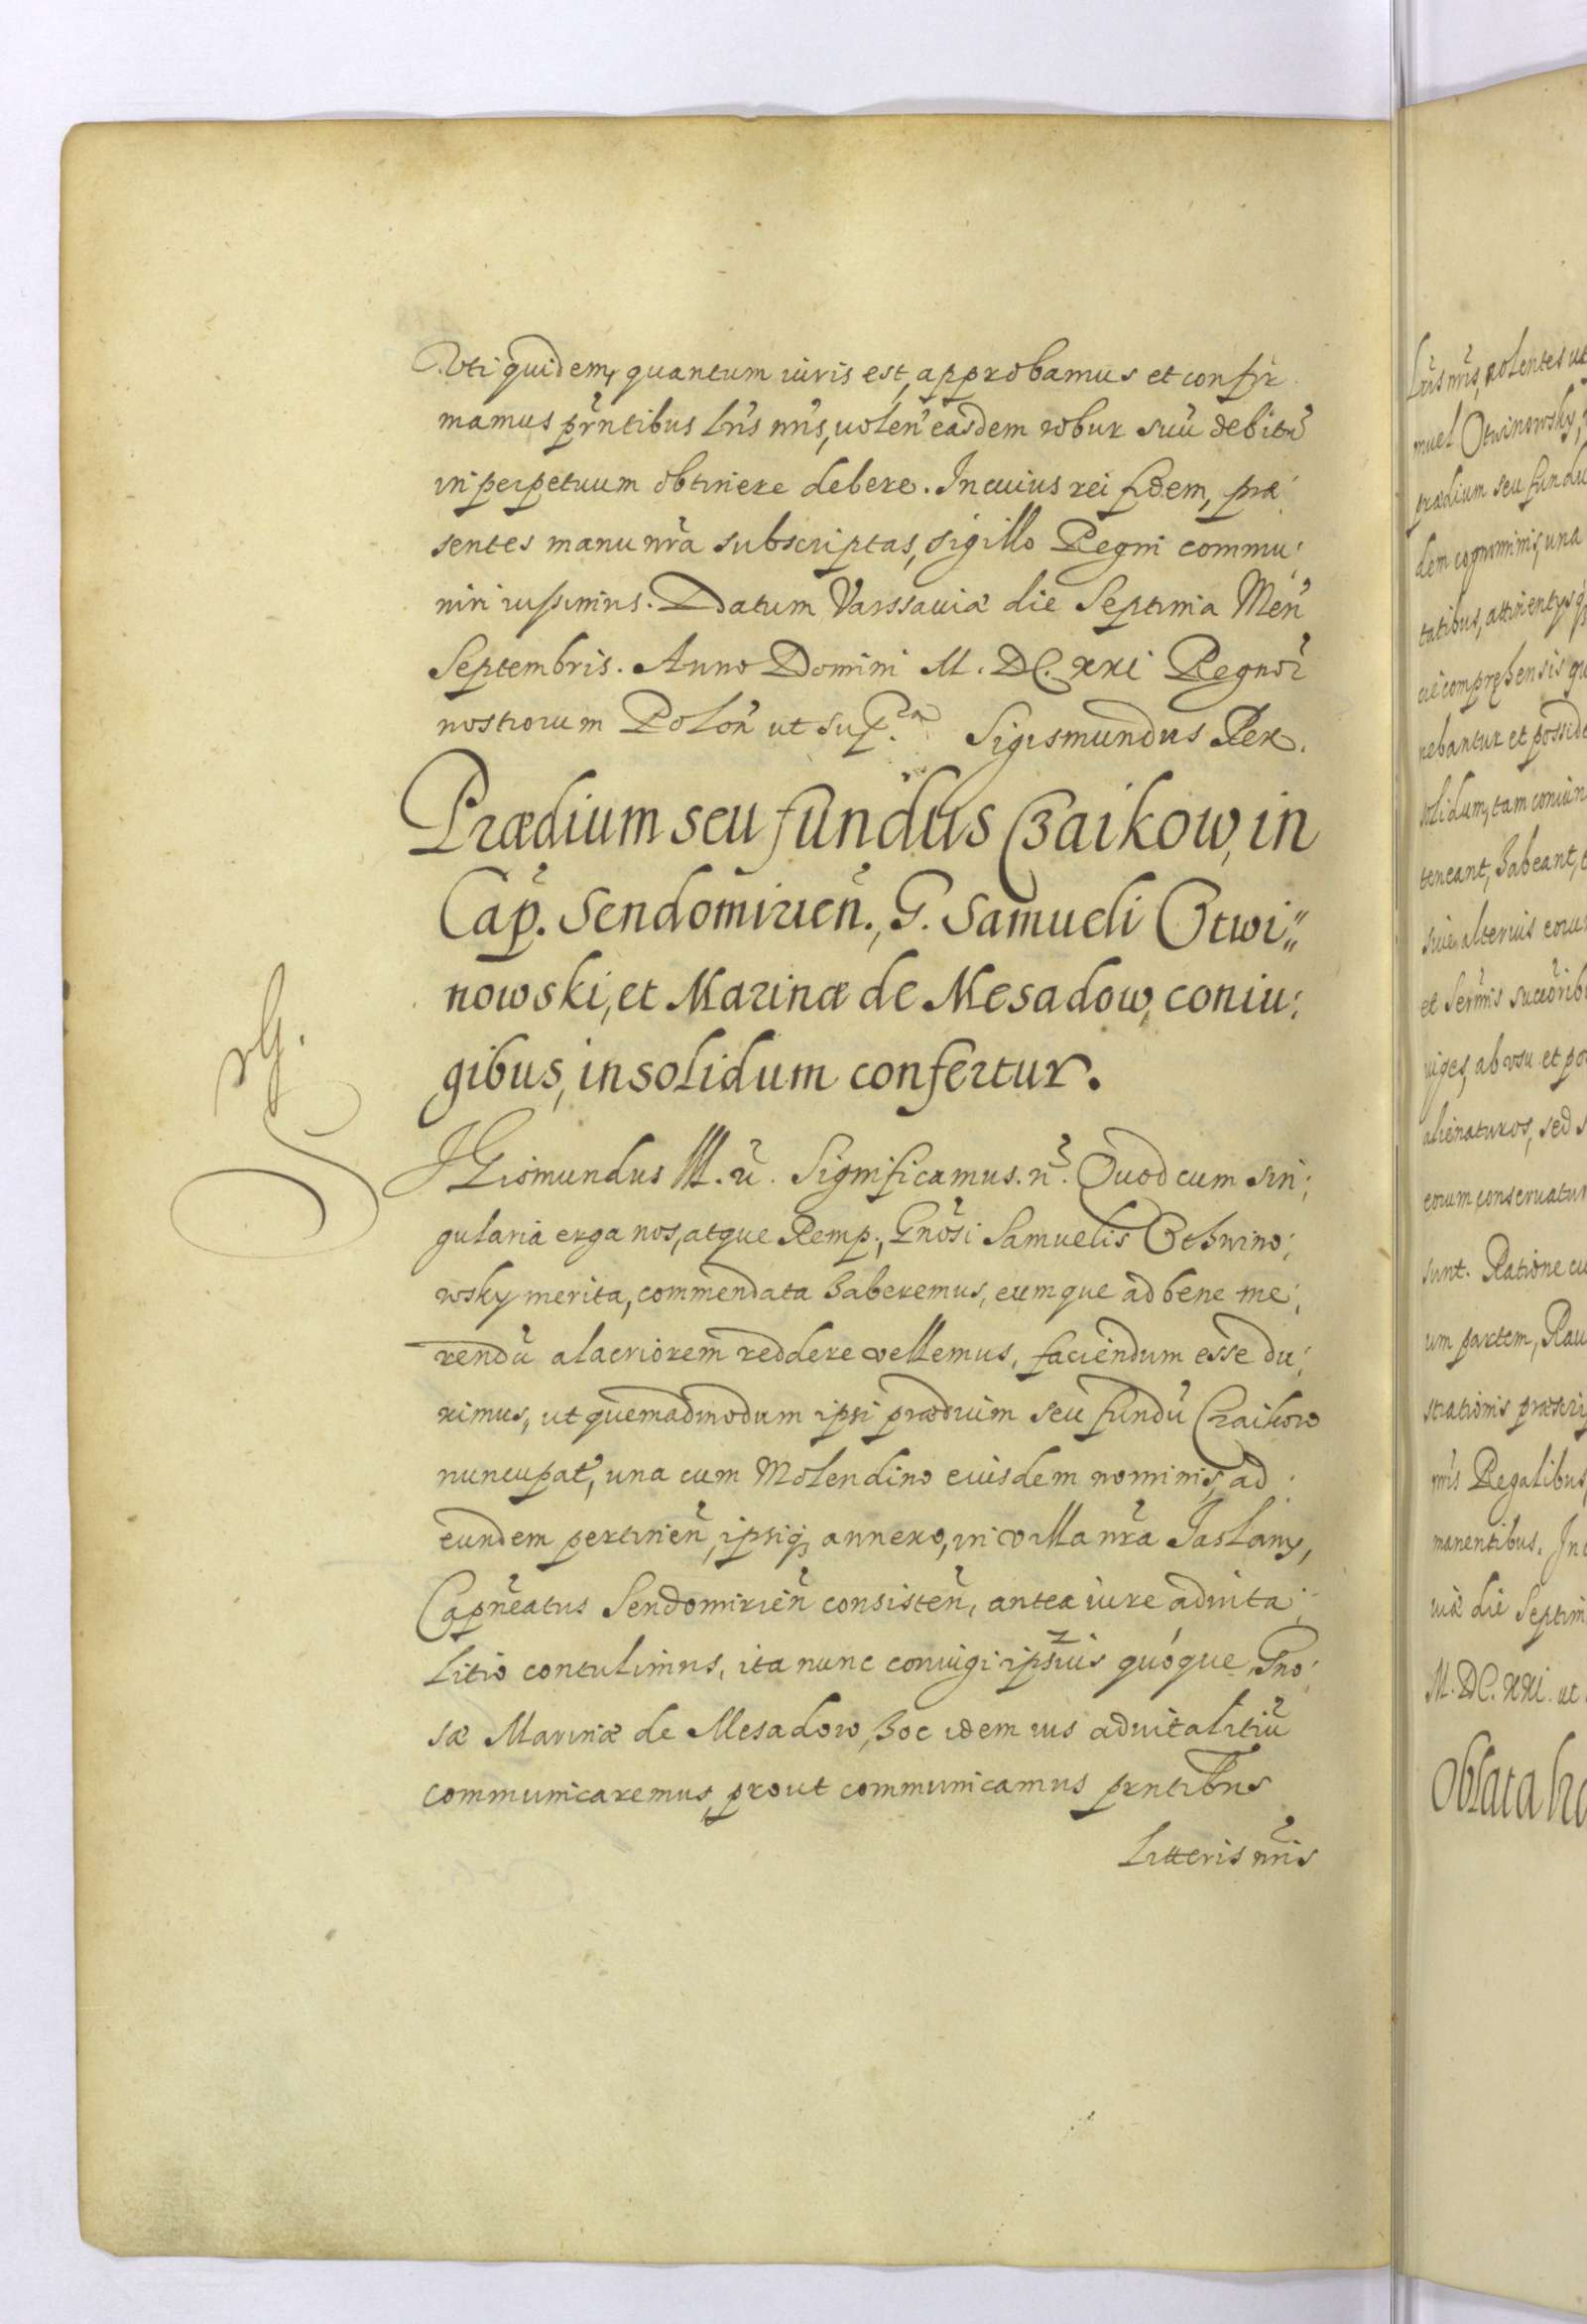 Uti quidem, quantum iuris est, approbamus et confir
mamus pr̃ntibus lr̃is nr̃is, uoleñ easdem robur suũ debitũ
in perpetuum obtinere debere. In cuius rei fidem, præ:
sentes manu nr̃a subscriptas, sigillo Regni commu:
niri iussimus. Datum Varssauiæ die Septima Meñ
Septembris. Anno Domini M. DC. XXI Regnor̃
nostrorum Poloñ ut supra Sigismundus Rex.
Prædium seu fundus Czaikow, in
Cap̃. Sendomirieñ., G. Samueli Otwi"
nowski, et Marinæ de Mesadow, coniu:
gibus, in solidum confertur.
SGismundus III. ũ. Significamus. ñ. Quod cum sin:
gularia erga nos, atque Remp., Gñosi Samuelis Othwino:
wsky merita, commendata haberemus, eumque ad bene me:
rendũ alacriorem reddere vellemus, faciendum esse du:
ximus, ut quemadmodum ipsi prædium seu fundũ Czaikow
nuncupat̃, una cum Molendino eiusdem nominis, ad
eundem pertineñ, ipsiq; annexo, in villa nr̃a Jaslany,
Capñeatus Sendomirieñ consisteñ, antea iure aduita:
litio contulimus, ita nunc coniugi ipsius quóque Gno:
sæ Marinæ de Mesadow, hoc idem ius aduitalitiũ
communicaremus, prout communicamus prntibus
Litteris nr̃is
Lr̃is nr̃is, uolentes ut
muel Otwinowsky,
prædium seu fundu
dem cognominis, una
tatibus, attinentijsq;
uè comprehensis qu
nebantur et posside
solidum, tam coniun
teneant, habeant,
siue alterius eoru
et Serm̃is succ̃orib
iuges, ab usu et po
alienaturos, sed s
eorum conseruatur
sunt. Ratione cu
um partem, Rau
strationis præscri
nr̃is Regalibus,
manentibus. In c
uiæ die Septim
M. DC. XXI. ut
Oblata